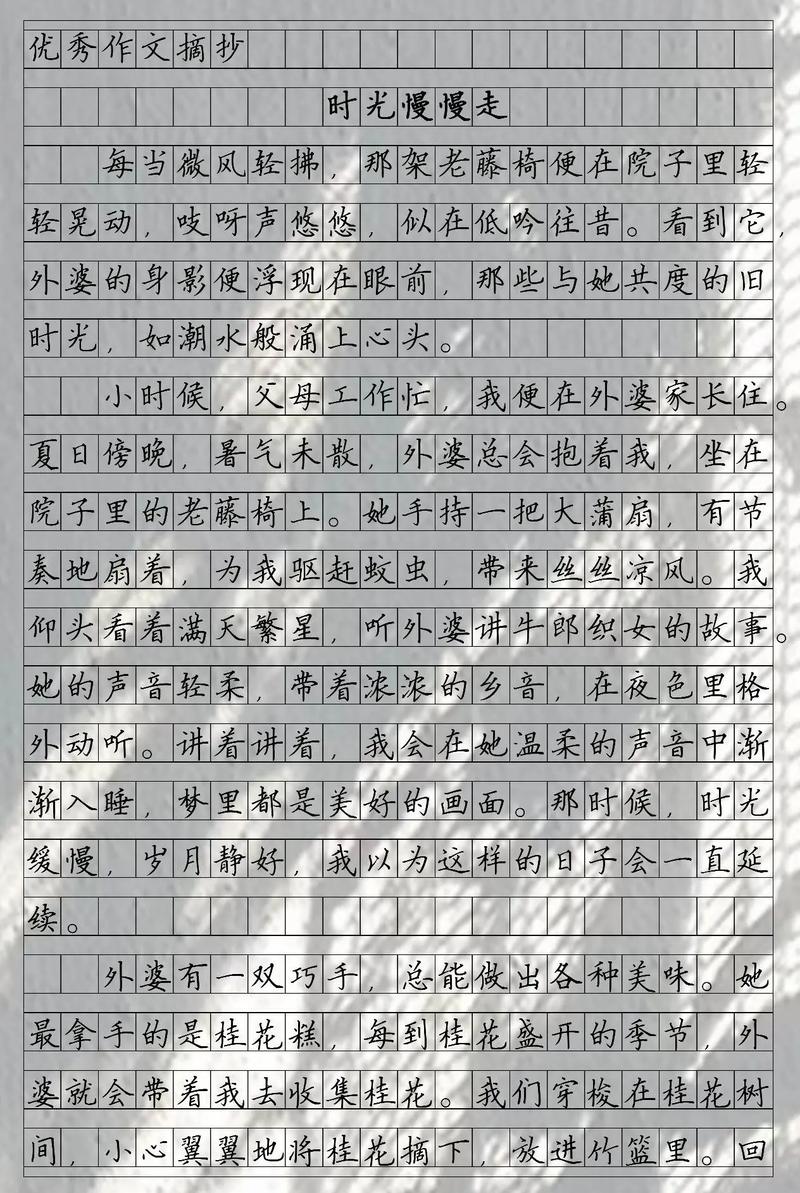 优秀作文摘抄
时光慢慢走
每当微风轻拂，那架老藤椅便在院子里轻
轻晃动，吱呀声悠悠，似在低吟往昔。看到它，
外婆的身影便浮现在眼前，那些与她共度的旧
时光，如潮水般涌上心头。
小时候，父母工作忙，我便在外婆家长住。
夏日傍晚，暑气未散，外婆总会抱着我，坐在
院子里的老藤椅上。她手持一把大蒲扇，有节
奏地扇着，为我驱赶蚊虫，带来丝丝凉风。我
仰头看着满天繁星，听外婆讲牛郎织女的故事。
她的声音轻柔，带着浓浓的乡音，在夜色里格
外动听。讲着讲着，我会在她温柔的声音中渐
渐入睡，梦里都是美好的画面。那时候，时光
缓慢，岁月静好，我以为这样的日子会一直延
续。
外婆有一双巧手，总能做出各种美味。她
最拿手的是桂花糕，每到桂花盛开的季节，外
婆就会带着我去收集桂花。我们穿梭在桂花树
间，小心翼翼地将桂花摘下，放进竹篮里。回